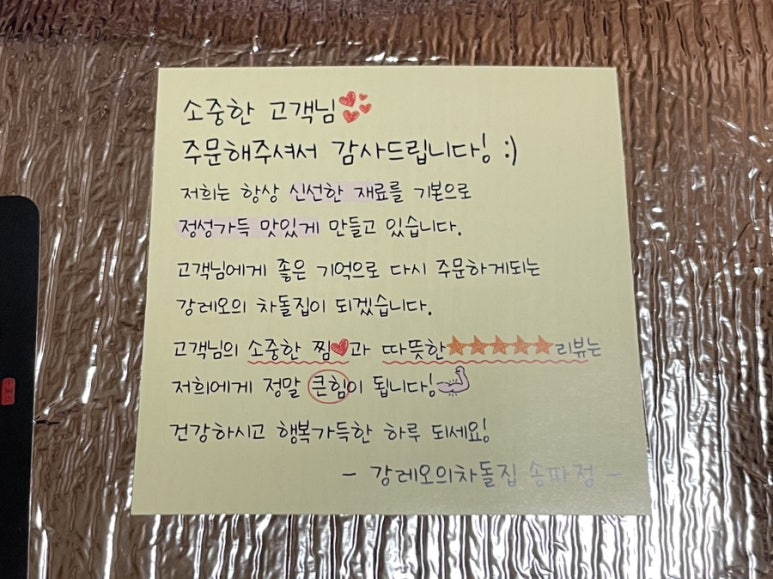 소중한 고객님
주문해주셔서 감사드립니다! :)
저희는 항상 신선한 재료를 기본으로
정성가득 맛있게 만들고 있습니다.
고객님에게 좋은 기억으로 다시 주문하게되는
강레오의 차돌집이 되겠습니다.
고객님의 소중한 찜♥과 따뜻한★★★★★리뷰는
저희에게 정말 큰힘이 됩니다!
건강하시고 행복가득한 하루 되세요!
- 강레오의차돌집 송파점 -